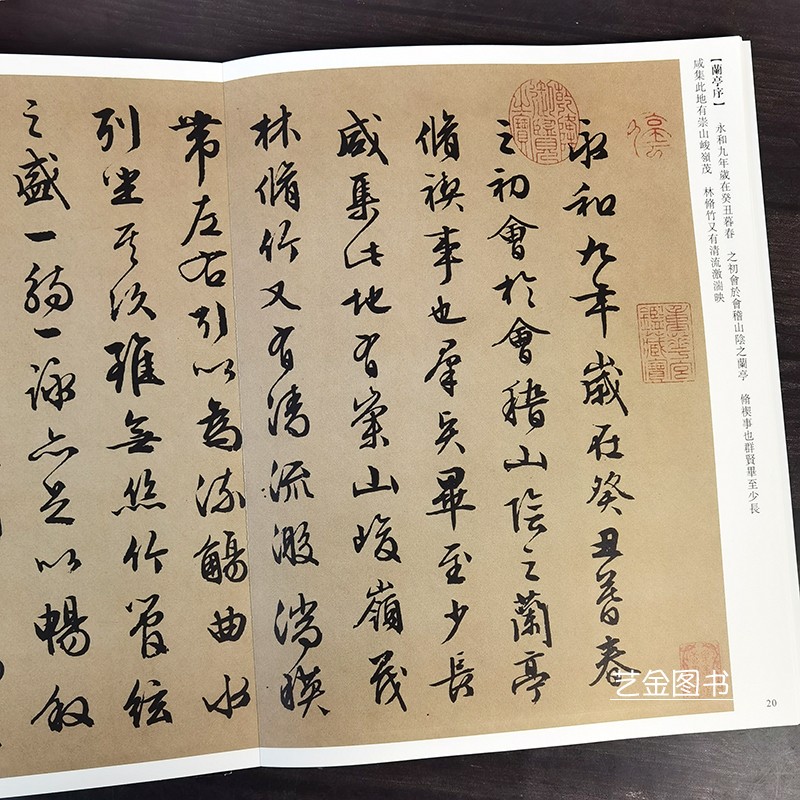 【蘭亭序】 永和九年歲在癸丑暮春 之初會於會稽山陰之蘭亭 脩禊事也群賢畢至少長
咸集此地有崇山峻嶺茂 林脩竹又有清流激湍映
永和九年歲在癸丑暮春
之初會於會稽山陰之蘭亭
脩禊事也羣賢畢至少長
咸集此地有崇山峻嶺茂
林脩竹又有清流激湍映
帶左右引以為流觴曲水
列坐其次雖無絲竹管絃
之盛一觴一詠亦足以暢敘
乾隆御覽之寶
重華宮鑑藏寶
艺金图书
20